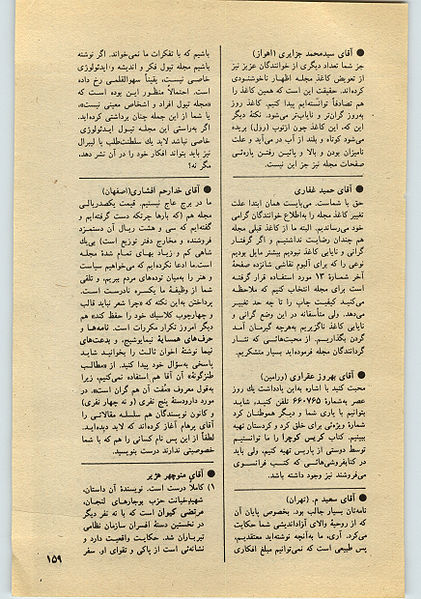 ● آقای سیدمحمد جزایری (اهواز)
جز شما تعداد دیگری از خوانندگان عزیز نیز
از تعویض کاغذ مجله اظهار ناخوشنودی
کرده‌اند. حقیقت این است که همین کاغذ را
هم تصادفاً توانسته‌ایم پیدا کنیم. کاغذ روز
به‌روز گران‌تر و نایاب‌تر می‌شود. نکتهٔ دیگر
این که، این کاغذ چون ازتوپ (رول) بریده
می‌شود کوتاه و بلند از آب در می‌آید و علت
نامیزان بودن و بالا و پائین رفتن پاره‌ئی
صفحات مجله نیز جز این نیست.
● آقای حمید غفاری
حق با شماست. می‌بایست همان ابتدا علت
تغییر کاغذ مجله را به‌اطلاع خوانندگان گرامی
خود می‌رساندیم. البته ما از کاغذ قبلی مجله
هم چندان رضایت نداشتیم و اگر گرفتار
گرانی و نایابی کاغذ نبودیم بیشتر مایل بودیم
نوعی را که برای آلبوم نقاشی شانزده صفحهٔ
آخر شمارهٔ ۱۳ مورد استفاده قرار گرفته
است برای مجله انتخاب کنیم که ملاحظه
می‌کنید کیفیت چاپ را تا چه حد تغییر
می‌دهد. ولی متأسفانه در این وضع گرانی و
نایابی کاغذ ناگزیریم به‌هرچه گیرمان آمد
گردن بگذاریم. از محبت‌هائی که نثار
گردانندگان مجله فرموده‌اید بسیار متشکریم.
● آقای بهروز عقراوی (ورامین)
محبت کنید با اشاره به‌این یادداشت یک روز
عصر به‌شمارهٔ ۶۶۰۷۶۵ تلفن کنید، شاید
بتوانیم با یاری شما و دیگر هموطنان کرد
شمارهٔ ویژه‌ئی برای خلق کرد و کردستان تهیه
ببینیم. کتاب کریس کوچرا را ما توانستیم
توسط دوستی از پاریس تهیه کنیم، ولی باید
در کتابفروشی‌هائی که کتب فرانسوی
می‌فروشند نیز وجود داشته باشد.
● آقای سعید م. (تهران)
نامه‌تان بسیار جالب بود. بخصوص پایان آن
که از روحیهٔ والای آزاداندیشی شما حکایت
می‌کرد. آری، ما به‌آنچه نوشته‌اید معتقدیم،
پس طبیعی است که نمی‌توانیم مبلغ افکاری
باشیم که با تفکرات ما نمی‌خواند. اگر نوشته
باشیم مجله تیول فکر و اندیشه و ایدئولوژی
خاصی نیست، یقیناً سهوالقلمی رخ داده
است. احتمالاً منظور این بوده است که
«مجله تیول افراد و اشخاص معینی نیست»،
یا شما از این جمله چنان برداشتی کرده‌اید.
اگر به‌راستی این مجله تیول ایدئولوژی
خاصی نباشد لابد یک سلطنت‌طلب یا لیبرال
نیز باید بتواند افکار خود را در آن نشر دهد،
مگر نه؟
● آقای خدارحم افشاری (اصفهان)
ما در برج عاج نیستیم. قیمت یکصدریالی
مجله هم (که بارها چرتکه دست گرفته‌ایم و
گفته‌ایم که سی و هشت ریال آن دستمزد
فروشنده و مخارج دفتر توزیع است) بی‌یک
شاهی کم و زیاد بهای تمام شدهٔ مجله
است.ما ادعا نکرده‌ایم که می‌خواهیم سیاست
و هنر را به‌میان توده‌های مردم ببریم، و تلقی
شما از وظیفهٔ ما یکسره نادرست است.
پرداختن به‌این نکته که «چرا شعر نباید قالب
و چهارچوب کلاسیک خود را حفظ کند» هم
دیگر امروز تکرار مکررات است. نامه‌ها و
حرف‌های همسایهٔ نیمایوشیج، و بدعت‌های
نیما نوشته اخوان ثالث را بخوانید شاید
پاسخی به‌سؤال خود پیدا کنید. از «مطالب
طنزگونهٔ» آن آقا هم استفاده نمی‌کنیم، زیرا
به‌قول معروف مُفت آن هم گران است. در
مورد دارودستهٔ پنج نفری (و نه چهار نفری)
و کانون نویسندگان هم سلسله مقالاتی را
آقای برهام آغاز کرده‌اند که لابد دیده‌اید.
لطفاً از این پس نام کسانی را هم که با شما
خصوصیتی ندارند درست بنویسید.
● آقای منوچهر هژیر
۱) کاملاً درست است. نویسندهٔ آن داستان،
شهیدخیانت حزب بوجارهای لنجان،
مرتضی کیوان است که با نه نفر دیگر
در نخستین دستهٔ افسران سازمان نظامی
تیرباران شد. حکایت واقعیت دارد و
نشانه‌ئی است از پاکی و تقوای او. سفر
۱۵۹